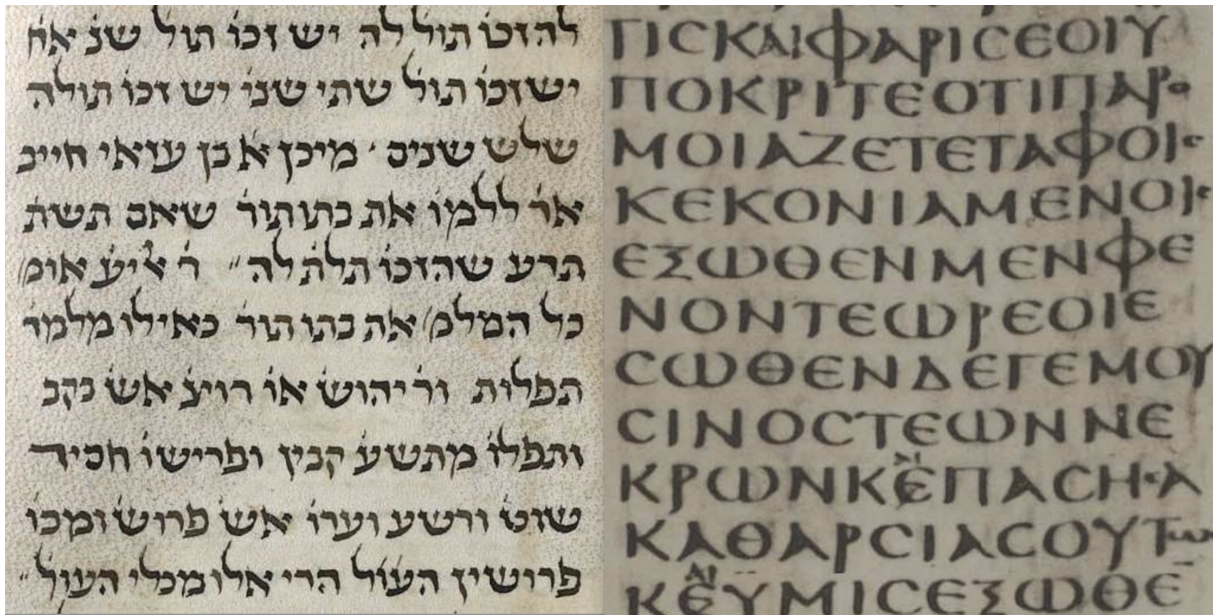 להזכו תול לה יש זכו תול שנ אח
יש זכו תול שתי שני יש זכו תולה
שלש שנים ׳ מיכן א בן עזאי חייב
אד ללמד את בתו תור שאם תשת
תדע שהזכו תלת לה ״ ר׳ אליע אומ׳
כל המלמ׳ את בתו תור כאילו מלמד
תפלות ור יהוש או רוצ אש בקב
ותפלו מתשע קבין ופרישו חסיד
שוט ורשע וערו אש פרוש ומכו
פרושין העול הרי אלו מכלי העול ״
ΓΙCΚΑΙΦΑΡΙCΕΟΙΥ
ΠΟΚΡΙΤΕΟΤΙΠΑΡΟ
ΜΟΙΑΖΕΤΕΤΑΦΟΙC
ΚΕΚΟΝΙΑΜΕΝΟΙC
ΕΞΩΘΕΝΜΕΝΦΕ
ΝΟΝΤΕΩΡΕΟΙΕ
CΩΘΕΝΔΕΓΕΜΟΥ
CΙΝΟCΤΕΩΝΝΕ
ΚΡΩΝΚΑΙΕΠΑCΗCΑ
ΚΑΘΑΡCΙΑCΟΥΤΩ
ΚΑΙΕΥΜΙCΕΞΩΘΕ